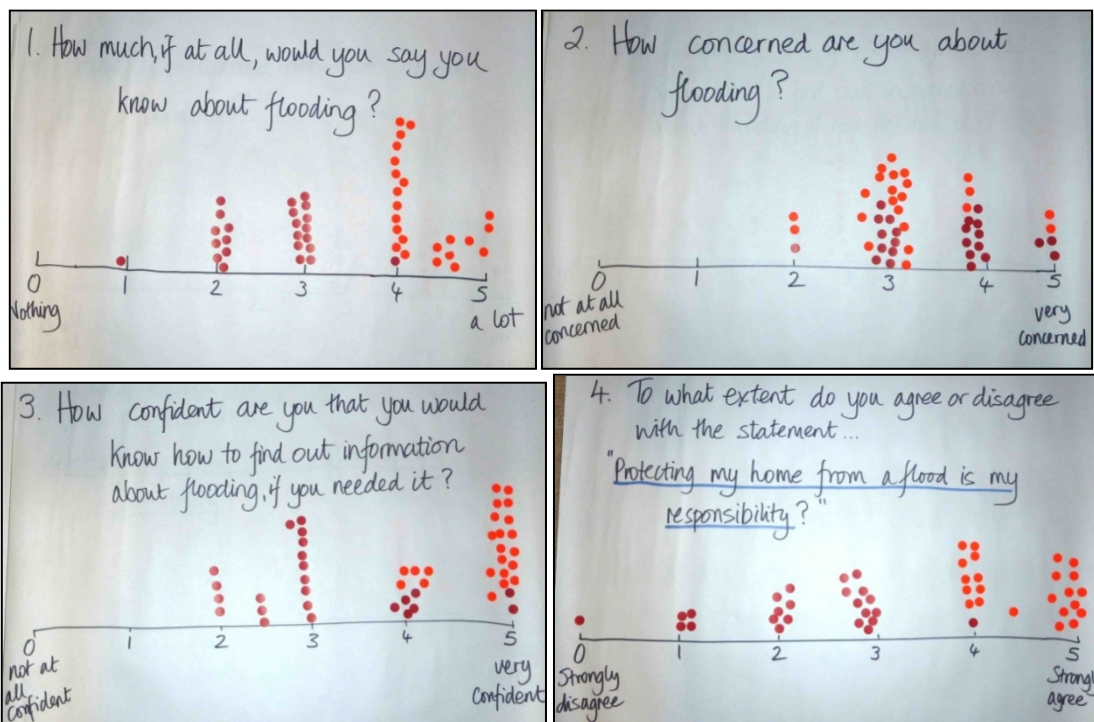 1. How much, if at all, would you say you
know about flooding?
0 1 2 3 4 5
Nothing
a lot
2. How concerned are you about
flooding?
0 1 2 3 4 5
not at all
concerned
very
concerned
3. How confident are you that you would
know how to find out information
about flooding, if you needed it?
0 1 2 3 4 5
not at
all
confident
very
confident
4. To what extent do you agree or disagree
with the statement...
"Protecting my home from a flood is my
responsibility?"
0 1 2 3 4 5
Strongly
disagree
Strongly
agree